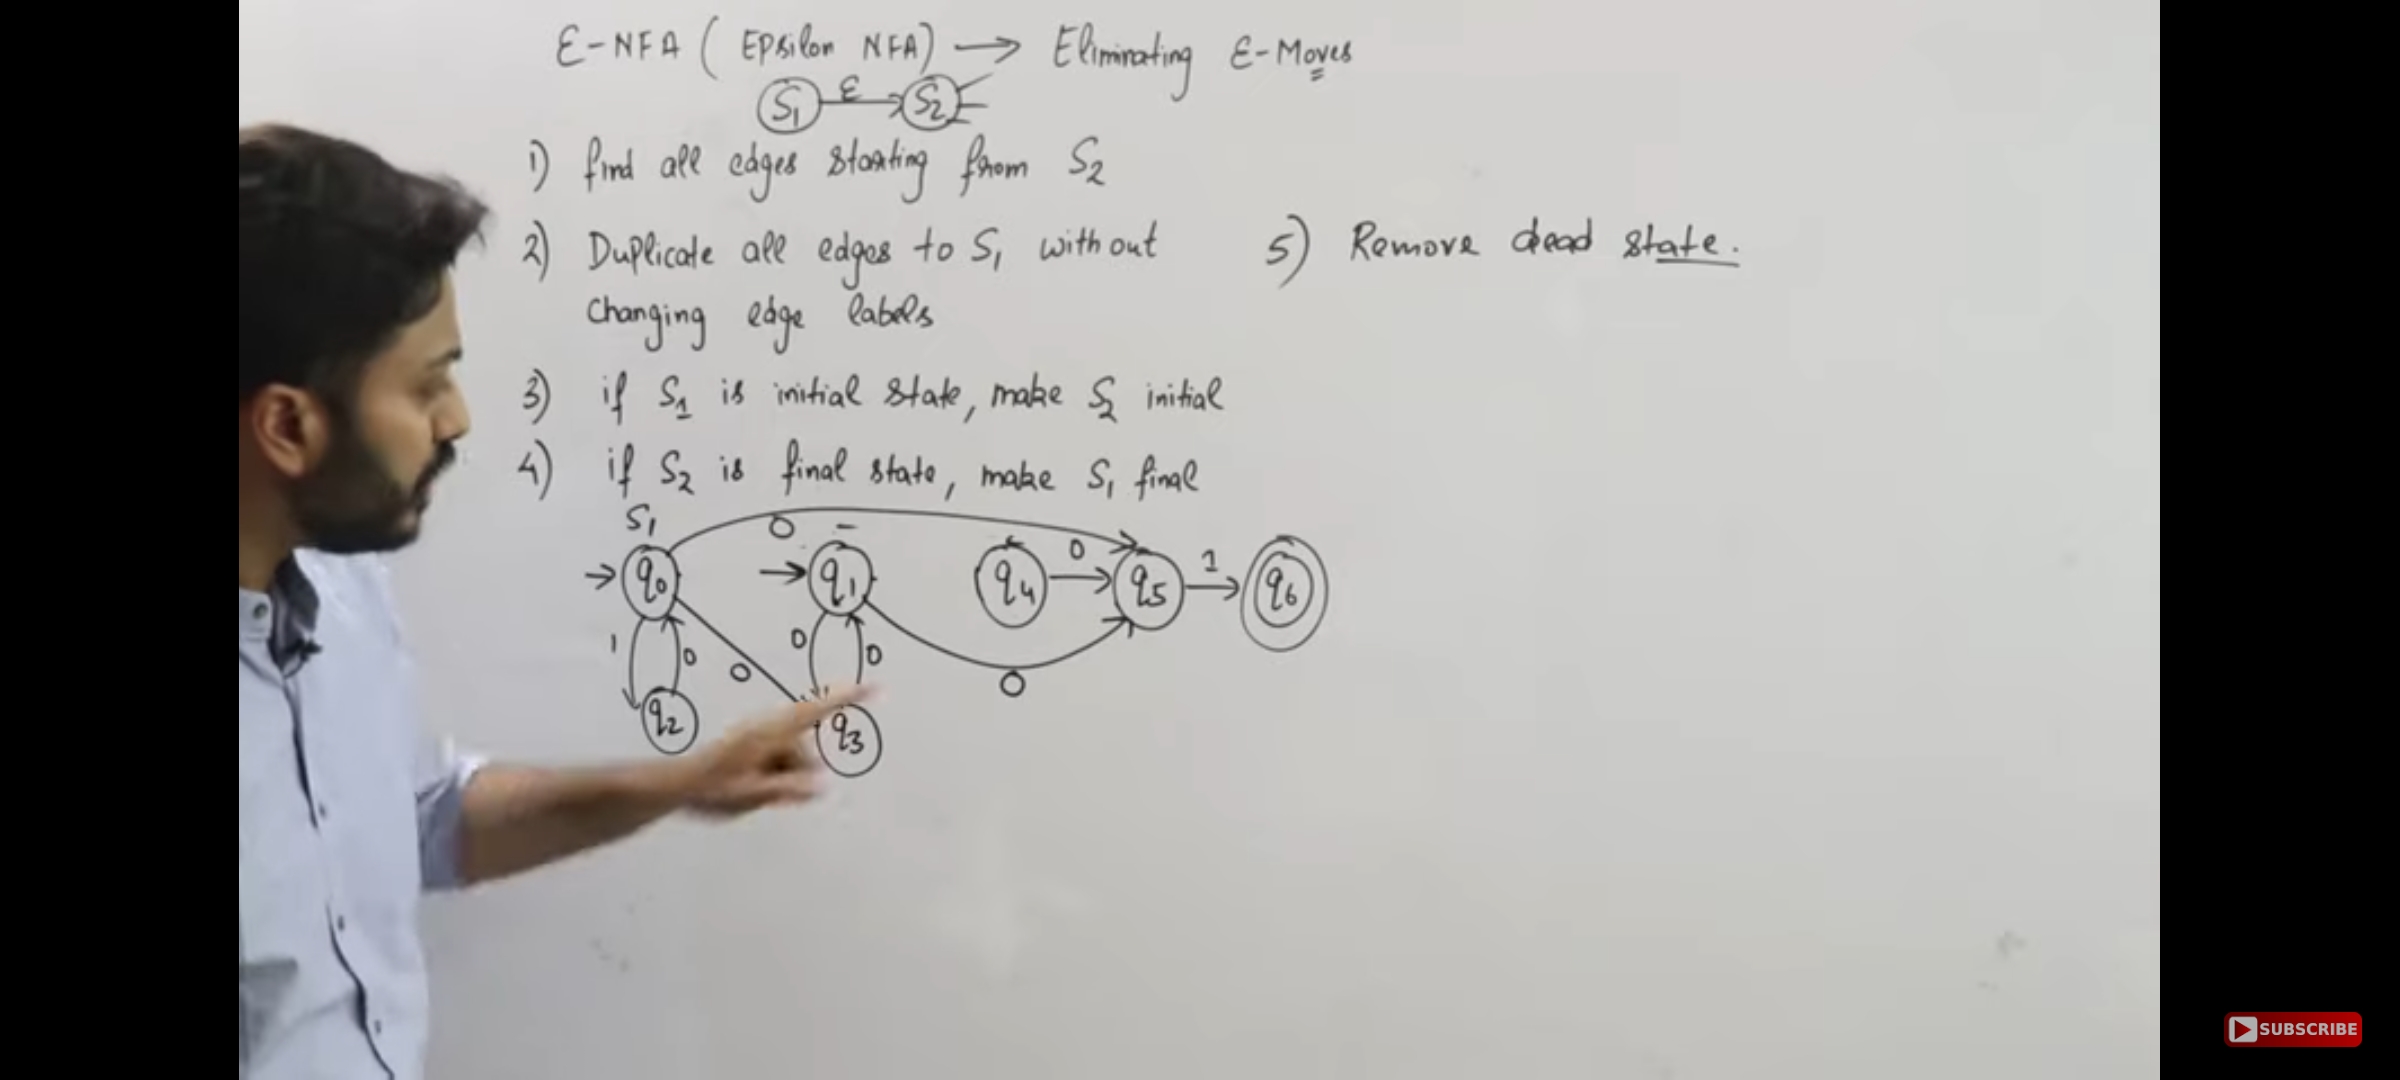 ε-NFA ( Epsilon NFA) → Eliminating ε-Moves
S1 ε S2
1) find all edges starting from S2
2) Duplicate all edges to S1 without
changing edge labels
3) if S1 is initial state, make S2 initial
4) if S2 is final state, make S1 final
5) Remove dead state.
S1
0
q0 q1 q4 0 q5 1 q6
1 0 0 0 0
0
q2 q3
SUBSCRIBE